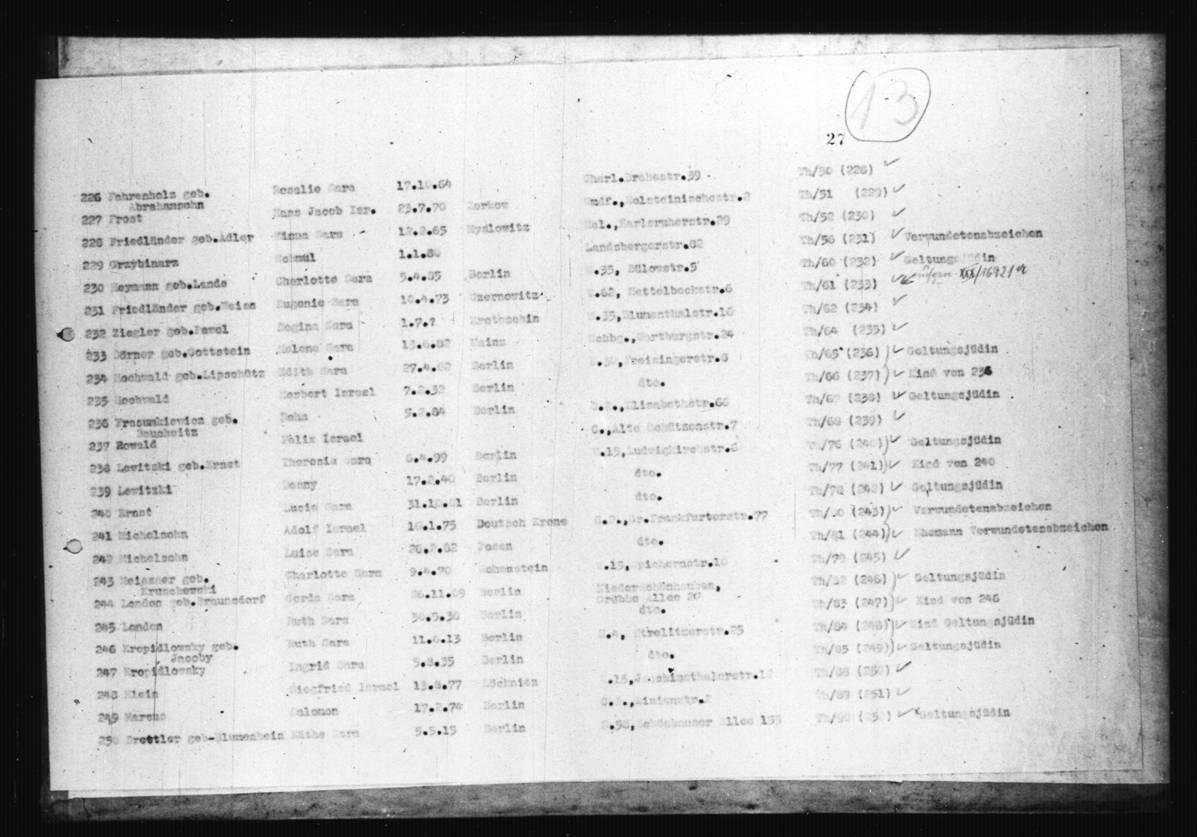 13
27
226 Fahrenholz geb. Rosalie Sara 17.10.64 Charl. 39 Th/50 (228)
Abrahamsohn
227 Frost Hans Jacob Isr. 23.7.70 Zerkow Wmdf.,Holsteinischestr.2 Th/51 (229)
228 Friedländer geb.Adler Minna Sara 12.2.65 Myslowitz Hal.,Karlsruherstr.29 Th/52 (230)
229 Grzybinarz Schmul 1.1.80 Landsbergerstr.82 Th/58 (231) Verwundetenabzeichen
230 Heymann geb.Lande Charlotte Sara 5.4.85 Berlin W.35, Bülowstr.5 Th/60 (232) Geltungsjüdin
231 Friedländer geb.Weiss Eugenie Sara 10.4.73 Czernowitz W.62, Nettelbeckstr.6 Th/61 (233) XXX/16921
232 Ziegler geb. Regina Sara 1.7.? Krotoschin W.35,Blumenthalstr.16 Th/62 (234)
233 Dörner geb.Gottstein Helene Sara 13.6.82 Mainz Schbg.,Wartburgstr.24 Th/64 (235)
234 Hochwald geb.Lipschütz Edith Sara 27.4.02 Berlin Freisingerstr.8 Th/65 (236) Geltungsjüdin
235 Hochwald Herbert Israel 7.2.32 Berlin dto. Th/66 (237) Kind von 236
236 geb. 5.2.84 Berlin Elisabethstr.66 Th/67 (238) Geltungsjüdin
237 Rowald Felix Israel C.,Alte Schützenstr.7 Th/68 (239)
238 Lewitzki geb.Ernst Theresia Sara 6.4.99 Berlin W.15,Ludwigkirchstr.6 Th/76 (240) Geltungsjüdin
239 Lewitzki Denny 17.2.40 Berlin dto. Th/77 (241) Kind von 240
240 Ernst Lucie Sara 31.10.81 Berlin dto. Th/78 (242) Geltungsjüdin
241 Michelsohn Adolf Israel 16.1.75 Deutsch Krone Gr.Frankfurterstr.77 (243) Verwundetenabzeichen
242 Michelsohn Luise Sara 26.7.82 Posen dto. (244) Ehemann Verwundetenabzeichen
243 Meissner geb. Charlotte Sara 9.4.70 Hohenstein W.15,Spichernstr.16 Th/79 (245)
Kruschewski
244 London geb.Braunsdorf Gerda Sara 26.11.09 Berlin Niederschönhausen, Th/82 (246) Geltungsjüdin
Grabbe Allee 20
245 London Ruth Sara 30.5.38 Berlin dto. Th/83 (247) Kind von 246
246 Kropidlowsky geb. Ruth Sara 11.4.13 Berlin Strelitzerstr.25 Th/84 (248) Kind Geltungsjüdin
Jacoby
247 Kropidlowsky Ingrid Sara 5.8.35 Berlin dto. Th/85 (249) Geltungsjüdin
248 Klein Siegfried Israel 13.8.77 Löcknitz W.15,Joachimsthalerstr. Th/88 (250)
249 Marcus Salomon 17.2.74 Berlin Linienstr.2 Th/89 (251)
250 Drettler geb-Blumenhein Käthe Sara 5.5.15 Berlin N.58,Schönhauser Allee Th/90 (252) Geltungsjüdin